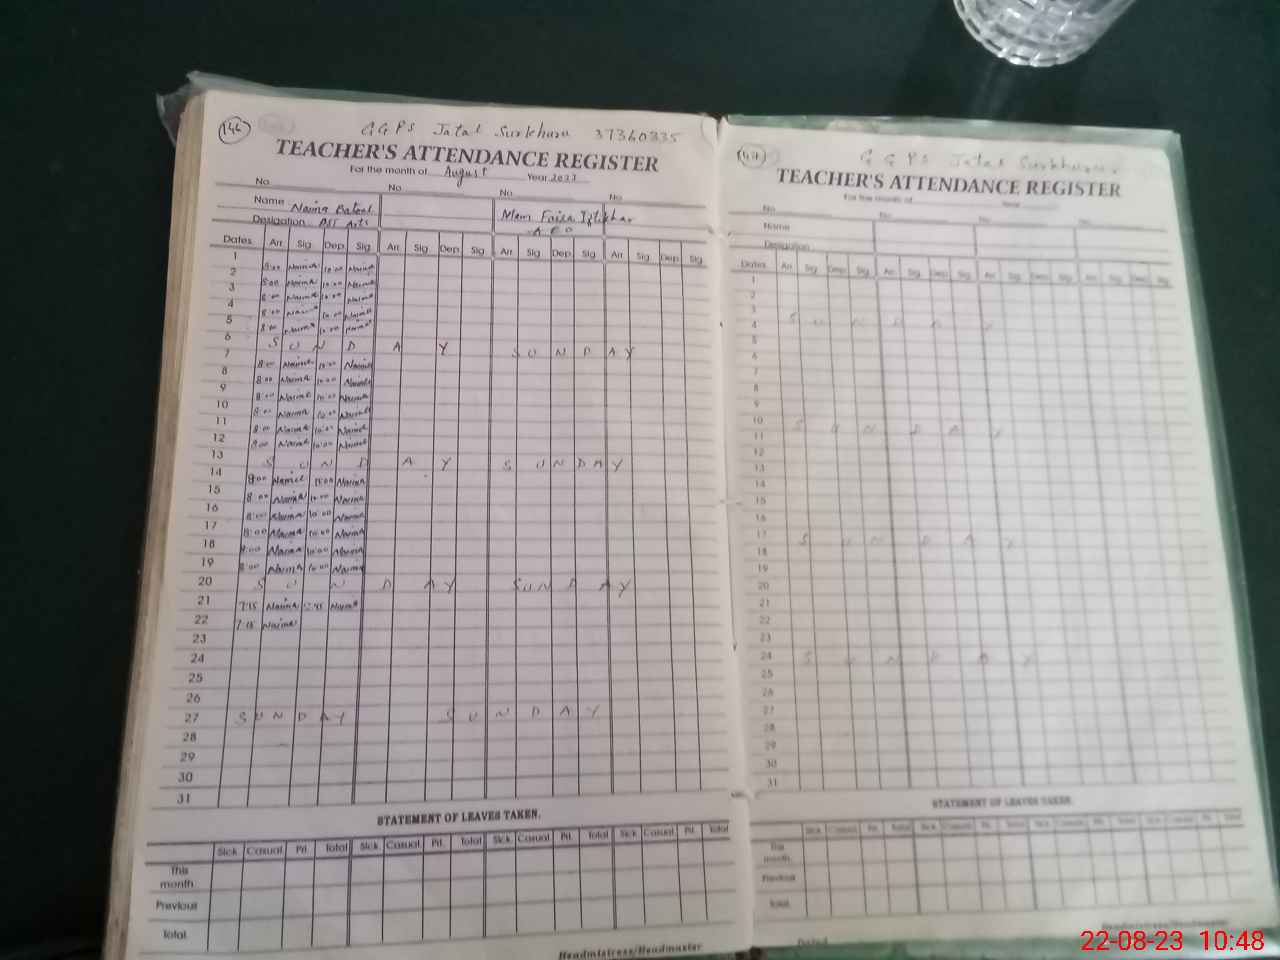 146
G G P S Jatal Surkhuru 37360335
TEACHER'S ATTENDANCE REGISTER
For the month of August Year 2023
No. No. No. No.
Name Naima Batool Mem Faiza Iftikhar
Designation PST Arts A E O
Dates Arr. Sig. Dep. Sig. Arr. Sig. Dep. Sig. Arr. Sig. Dep. Sig. Arr. Sig. Dep. Sig.
1 8:00 Naima 10:00 Naima
2 8:00 Naima 10:00 Naima
3 8:00 Naima 10:00 Naima
4 8:00 Naima 10:00 Naima
5 8:00 Naima 10:00 Naima
6 S U N D A Y S U N D A Y
7 8:00 Naima 10:00 Naima
8 8:00 Naima 10:00 Naima
9 8:00 Naima 10:00 Naima
10 8:00 Naima 10:00 Naima
11 8:00 Naima 10:00 Naima
12 8:00 Naima 10:00 Naima
13 S U N D A Y S U N D A Y
14 8:00 Naima 10:00 Naima
15 8:00 Naima 10:00 Naima
16 8:00 Naima 10:00 Naima
17 8:00 Naima 10:00 Naima
18 8:00 Naima 10:00 Naima
19 8:00 Naima 10:00 Naima
20 S U N D A Y S U N D A Y
21 7:15 Naima 12:45 Naima
22 7:15 Naima
23
24
25
26
27 S U N D A Y S U N D A Y
28
29
30
31
STATEMENT OF LEAVES TAKEN.
Sick Casual Pri. Total Sick Casual Pri. Total Sick Casual Pri. Total Sick Casual Pri. Total
This month
Previous
Total
Headmistress/Headmaster
G G P S Jatal Surkhuru
TEACHER'S ATTENDANCE REGISTER
For the month of Year
No. No. No. No.
Name
Designation
Dates Arr. Sig. Dep. Sig. Arr. Sig. Dep. Sig. Arr. Sig. Dep. Sig. Arr. Sig. Dep. Sig.
1
2
3 S U N D A Y
4
5
6
7
8
9
10 S U N D A Y
11
12
13
14
15
16
17 S U N D A Y
18
19
20
21
22
23
24 S U N D A Y
25
26
27
28
29
30
31
STATEMENT OF LEAVES TAKEN.
Sick Casual Pri. Total Sick Casual Pri. Total Sick Casual Pri. Total Sick Casual Pri. Total
This month
Previous
Total
Headmistress/Headmaster
Dated
22-08-23 10:48